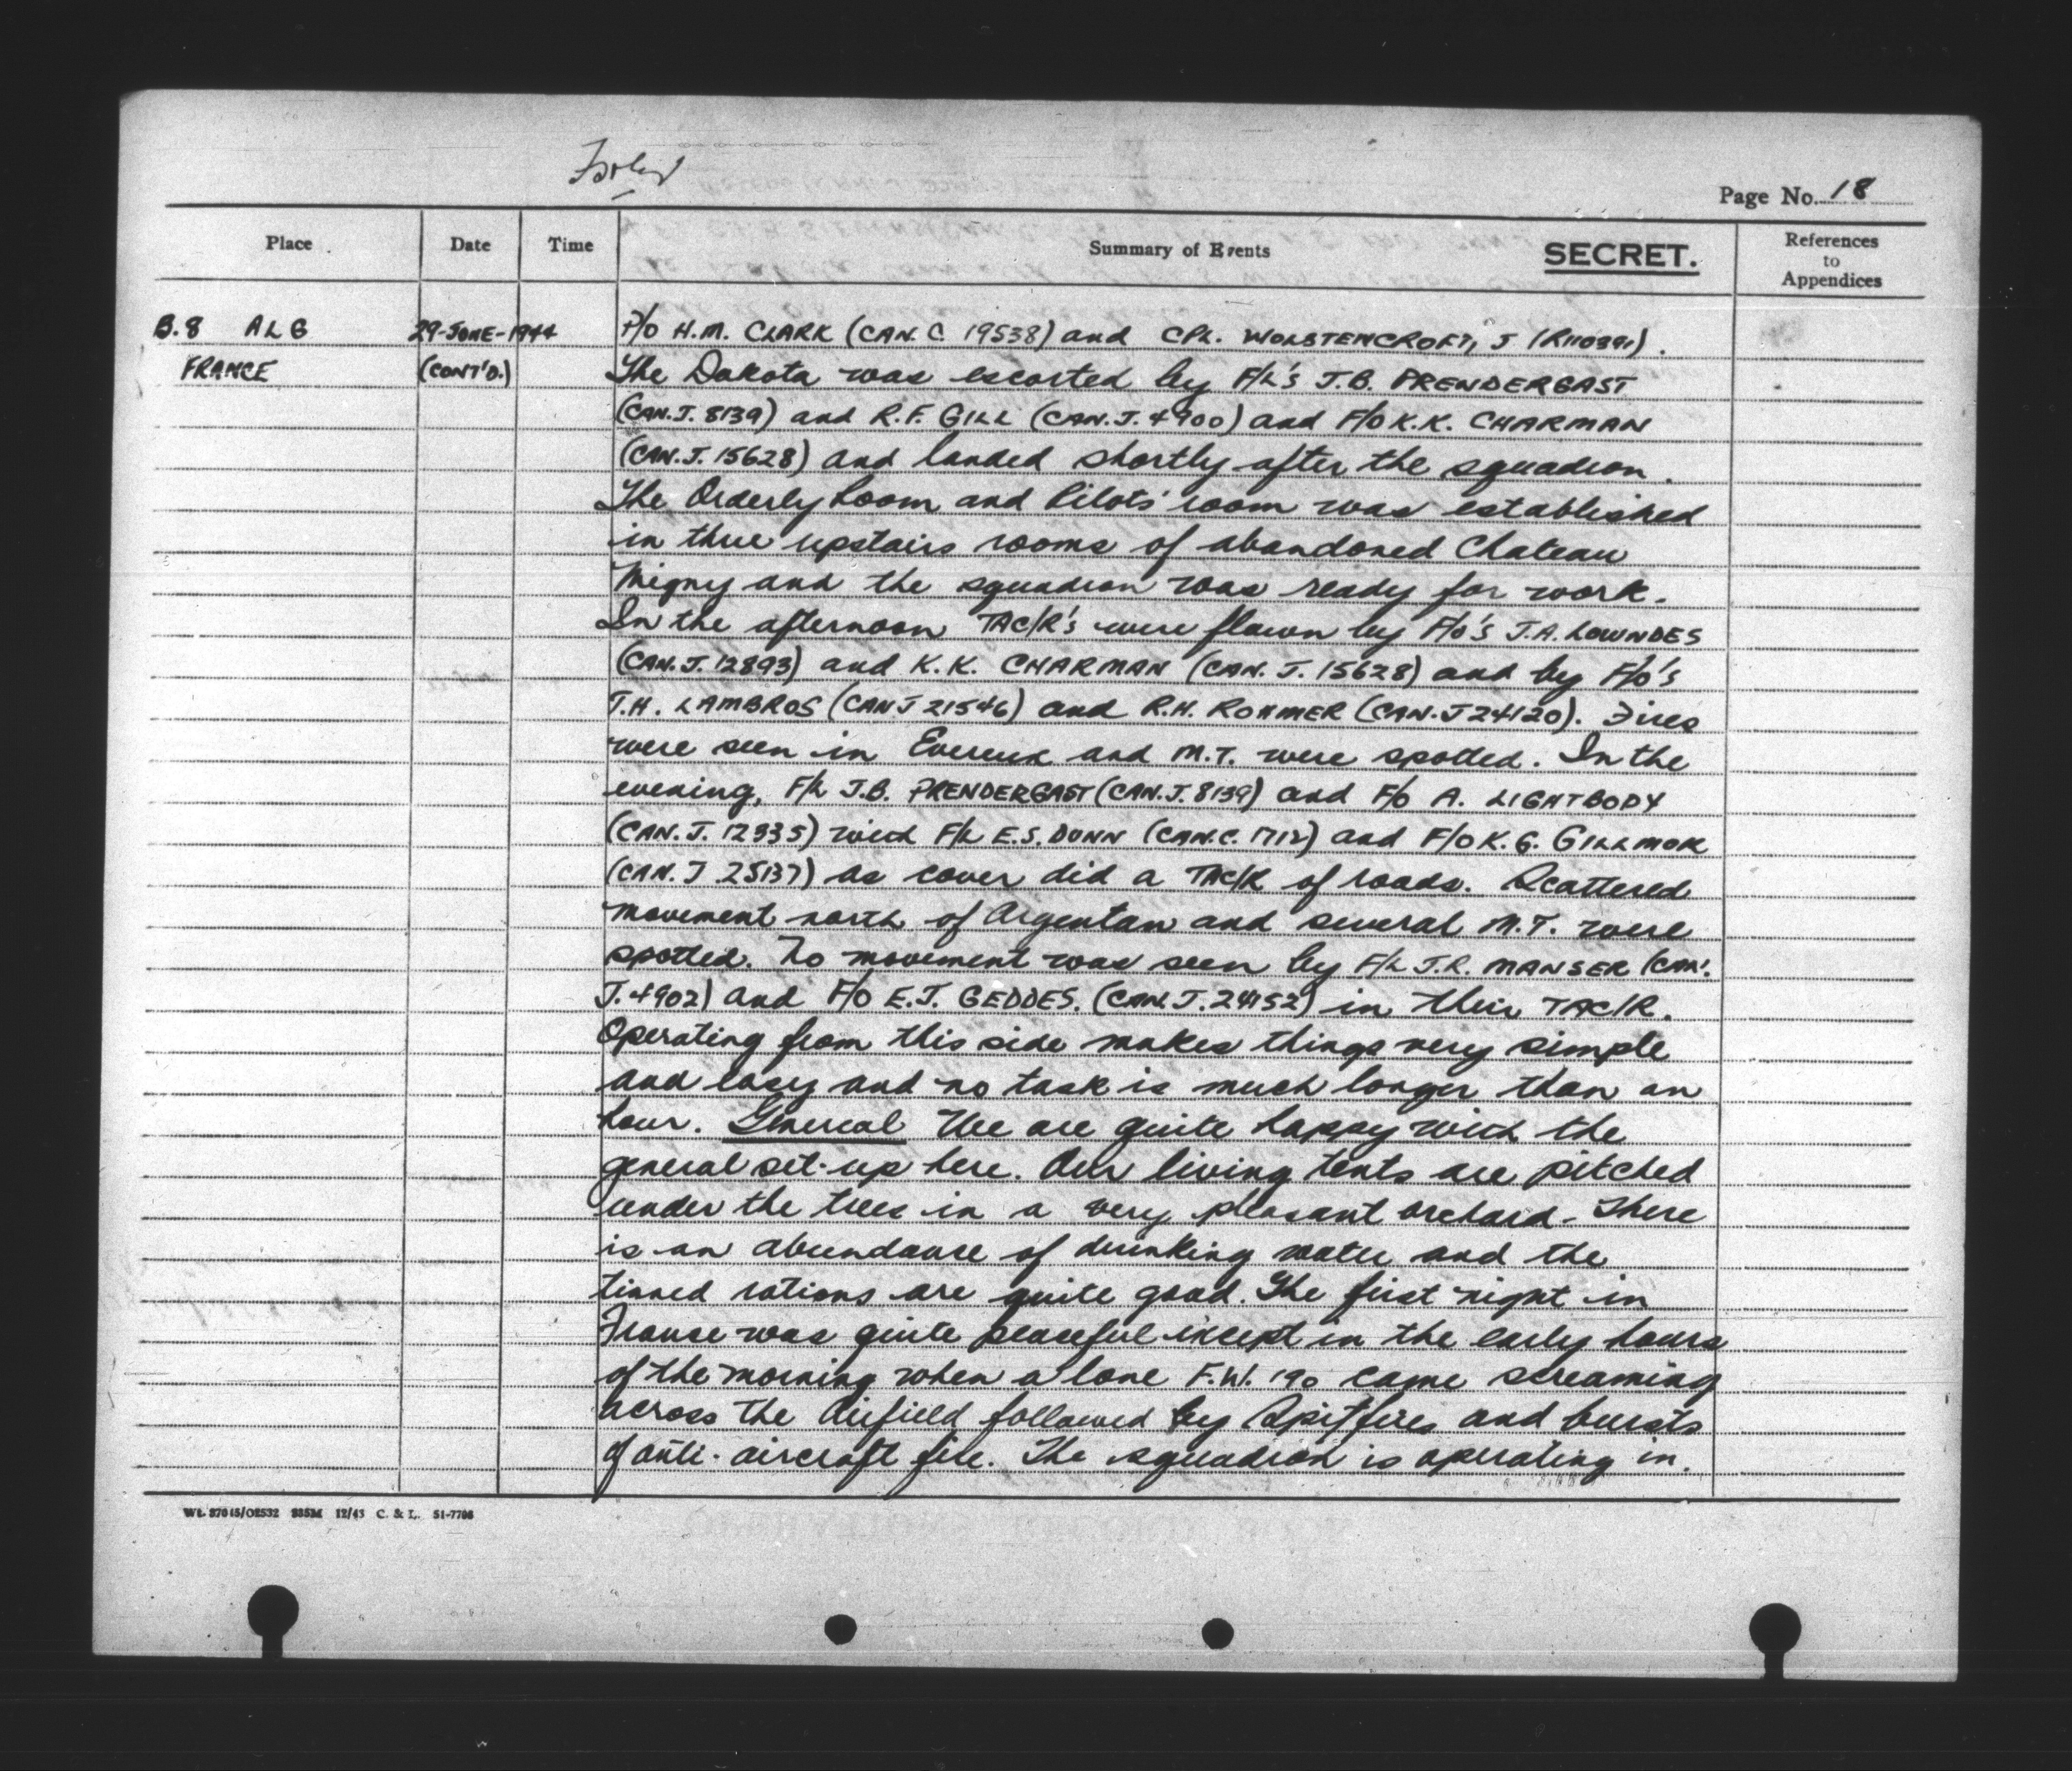 Page No. 18
Place Date Time Summary of Events SECRET. References to Appendices
B.8 ALG 29-JUNE-1944 F/O H.M. CLARK (CAN. C. 19538) and CPL. WOLSTENCROFT, J (R110891).
FRANCE (CONT'D.) The Dakota was escorted by F/L's J.B. PRENDERGAST
(CAN.J. 8139) and R.F. GILL (CAN.J. 4900) and F/O K.K. CHARMAN
(CAN.J. 15628) and landed shortly after the squadron.
The Orderly Room and Pilots' room was established
in three upstairs rooms of abandoned Chateau
Migny and the squadron was ready for work.
In the afternoon TAC/R's were flown by F/O's J.A. LOWNDES
(CAN.J. 12893) and K.K. CHARMAN (CAN. J. 15628) and by F/O's
T.H. LAMBROS (CAN J 21546) and R.H. ROHMER (CAN. J 24120). Fires
were seen in Evereux and M.T. were spotted. In the
evening, F/L J.B. PRENDERGAST (CAN.J. 8139) and F/O A. LIGHTBODY
(CAN. J. 12335) with F/L E.S. DUNN (CAN.C. 1712) and F/O K.G. GILLMOR
(CAN. J. 25137) as cover did a TAC/R of roads. Scattered
movement north of Argentan and several M.T. were
spotted. No movement was seen by F/L J.R. MANSER (CAN.
J. 4902) and F/O E.J. GEDDES. (CAN. J. 24152) in their TAC/R.
Operating from this side makes things very simple
and easy and no task is much longer than an
hour. General We are quite happy with the
general set-up here. Our living tents are pitched
under the trees in a very pleasant orchard. There
is an abundance of drinking water and the
tinned rations are quite good. The first night in
France was quite peaceful except in the early hours
of the morning when a lone F.W. 190 came screaming
across the airfield followed by Spitfires and bursts
of anti-aircraft fire. The squadron is operating in.
Wt. 37045/O2532 885M 12/43 C. & L. 51-7706